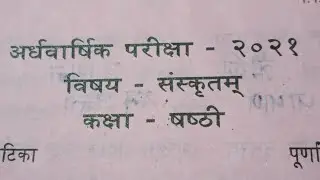 अर्धवार्षिक परीक्षा - २०२१
विषय - संस्कृतम्
कक्षा - षष्ठी
टिका पूर्णा